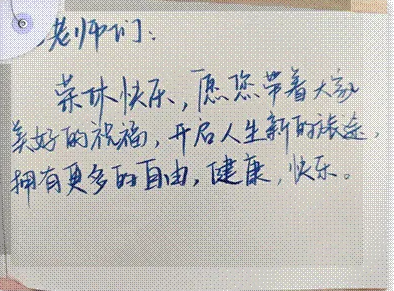 老师们：
荣休快乐，愿您带着大家
美好的祝福，开启人生新的旅途，
拥有更多的自由，健康，快乐。